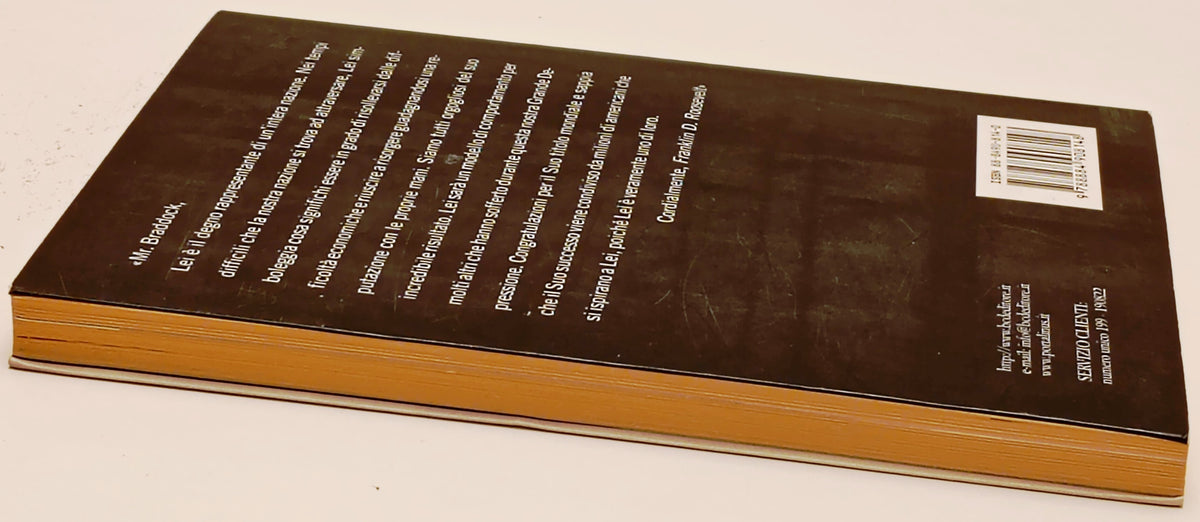 «Mr. Braddock,
Lei è il degno rappresentante di un'intera nazione. Nei tempi
difficili che la nostra nazione si trova ad attraversare, Lei sim-
boleggia cosa significhi essere in grado di risollevarsi dalle dif-
ficoltà economiche e riuscire a risorgere guadagnandosi una re-
putazione con le proprie mani. Siamo tutti orgogliosi del suo
incredibile risultato. Lei sarà un modello di comportamento per
molti altri che hanno sofferto durante questa nostra Grande De-
pressione. Congratulazioni per il Suo titolo mondiale e sappia
che il Suo successo viene condiviso da milioni di americani che
si ispirano a Lei, poiché Lei è veramente uno di loro.
Cordialmente, Franklin D. Rosevelt»
ISBN 88-8490-814-0
9 788884 908148
http://www.bcdeditore.it
e-mail: info@bcdeditore.it
www.portalinus.it
SERVIZIO CLIENTI:
numero unico 199 - 190822